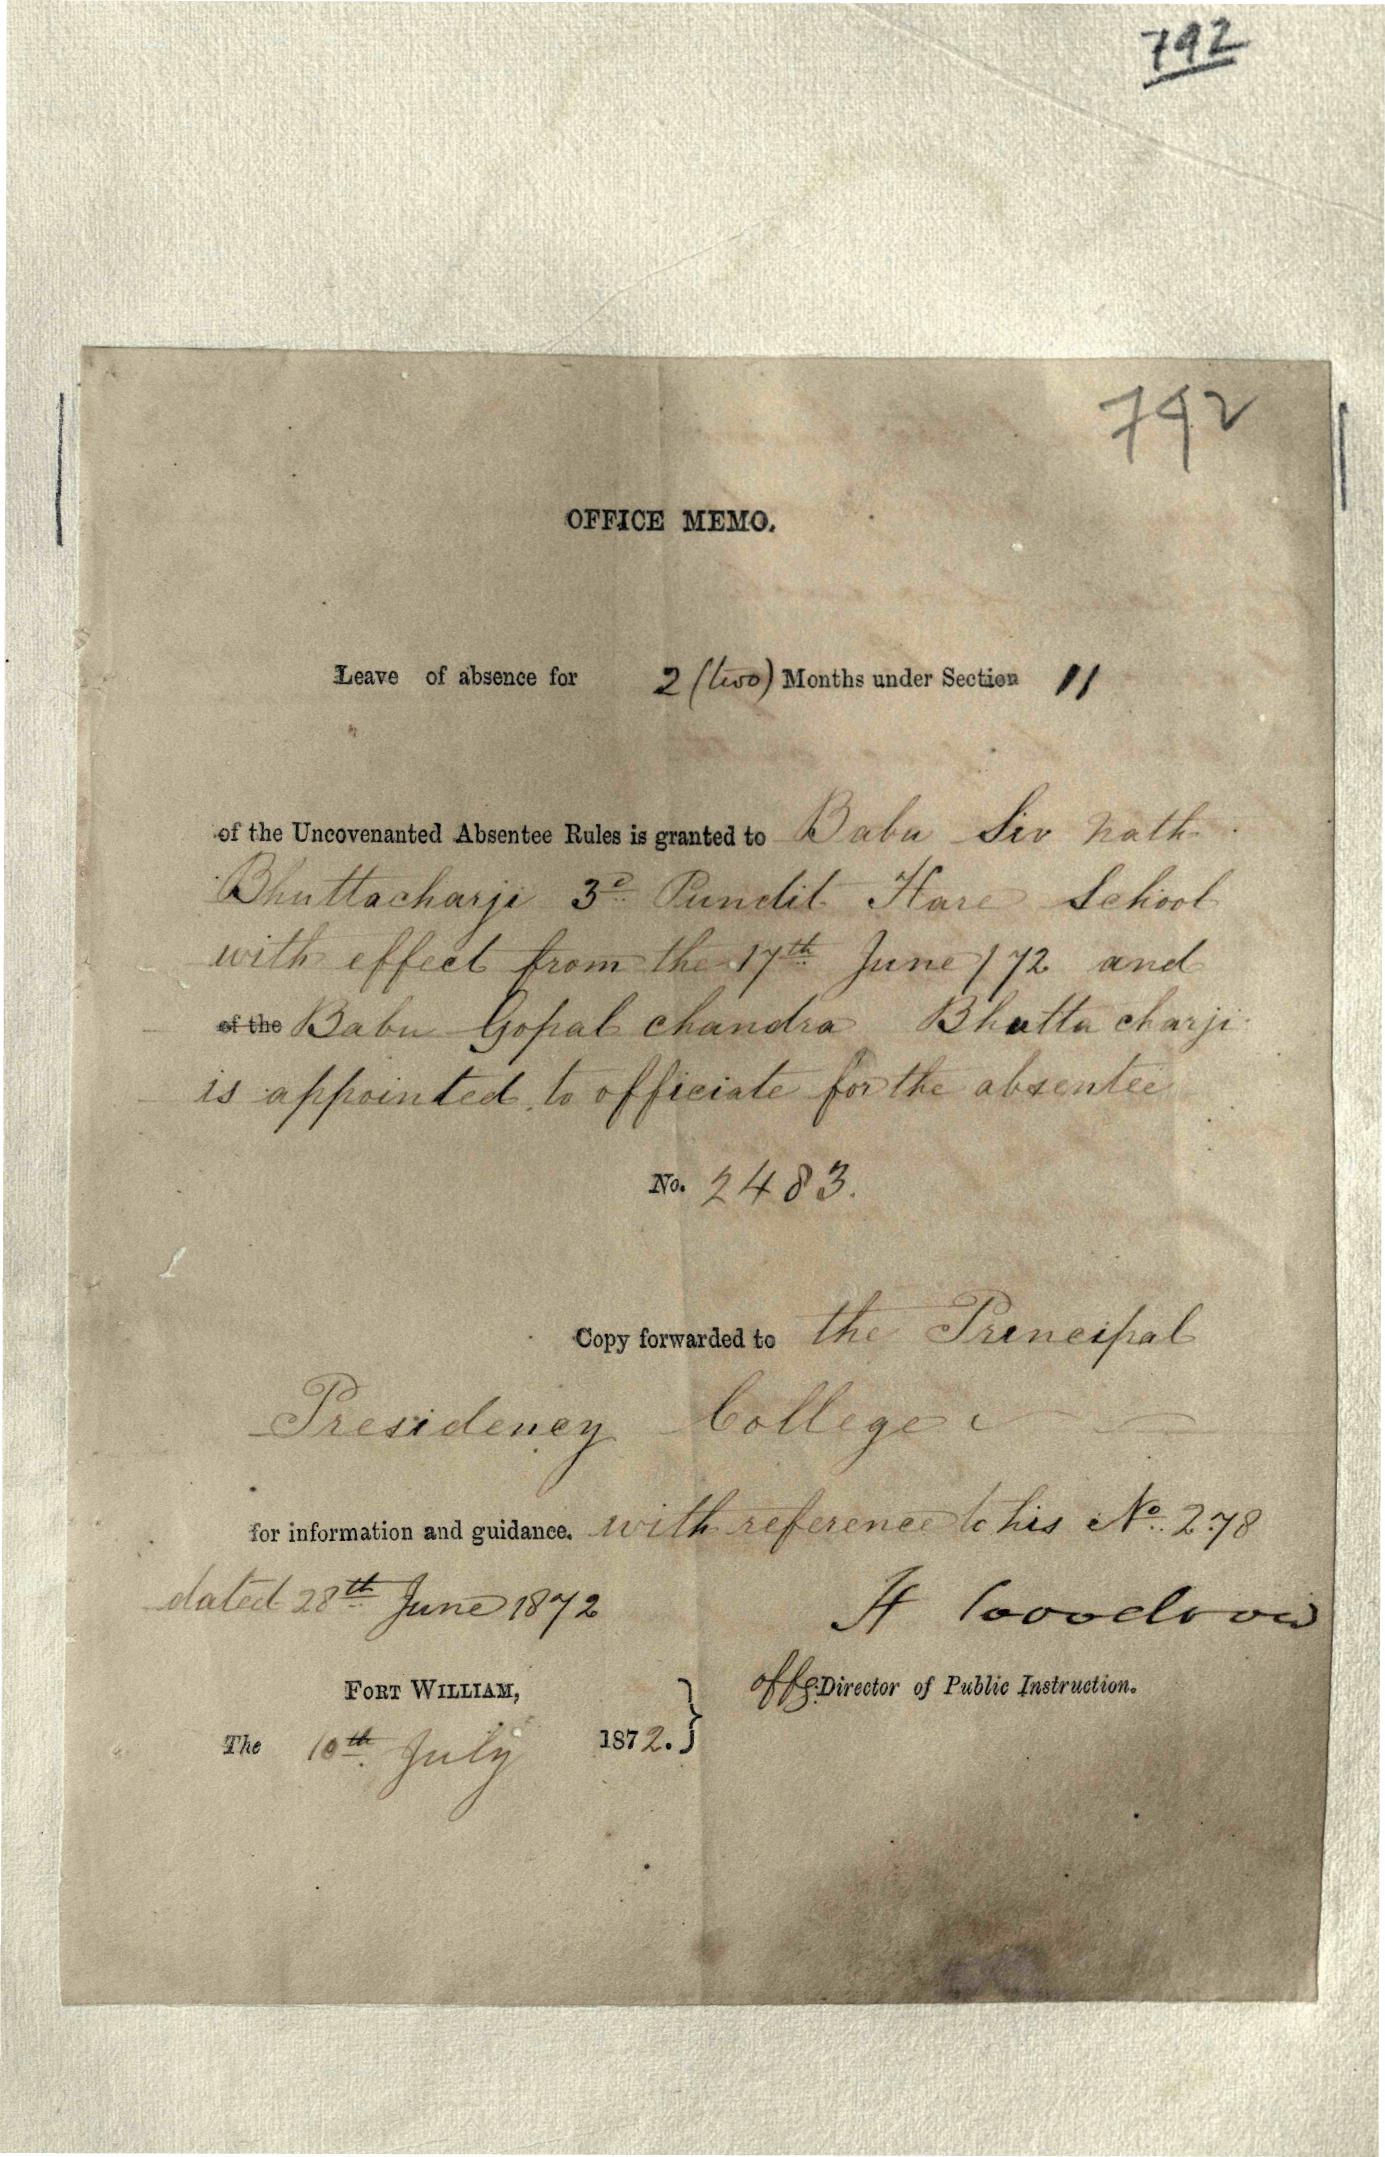 792
792
OFFICE MEMO.
Leave of absence for 2 (two) Months under Section 11
of the Uncovenanted Absentee Rules is granted to Babu Siv nath
Bhuttacharji 3d Pundit Hare School
with effect from the 17th June /72 and
of the Babu Gopal chandra Bhutta charji
is appointed to officiate for the absentee
No. 2483.
Copy forwarded to the Principal
Presidency College
for information and guidance. with reference to his No. 278
dated 28th June 1872
H Woodrow
FORT WILLIAM,
offg. Director of Public Instruction.
The 10th July 1872.